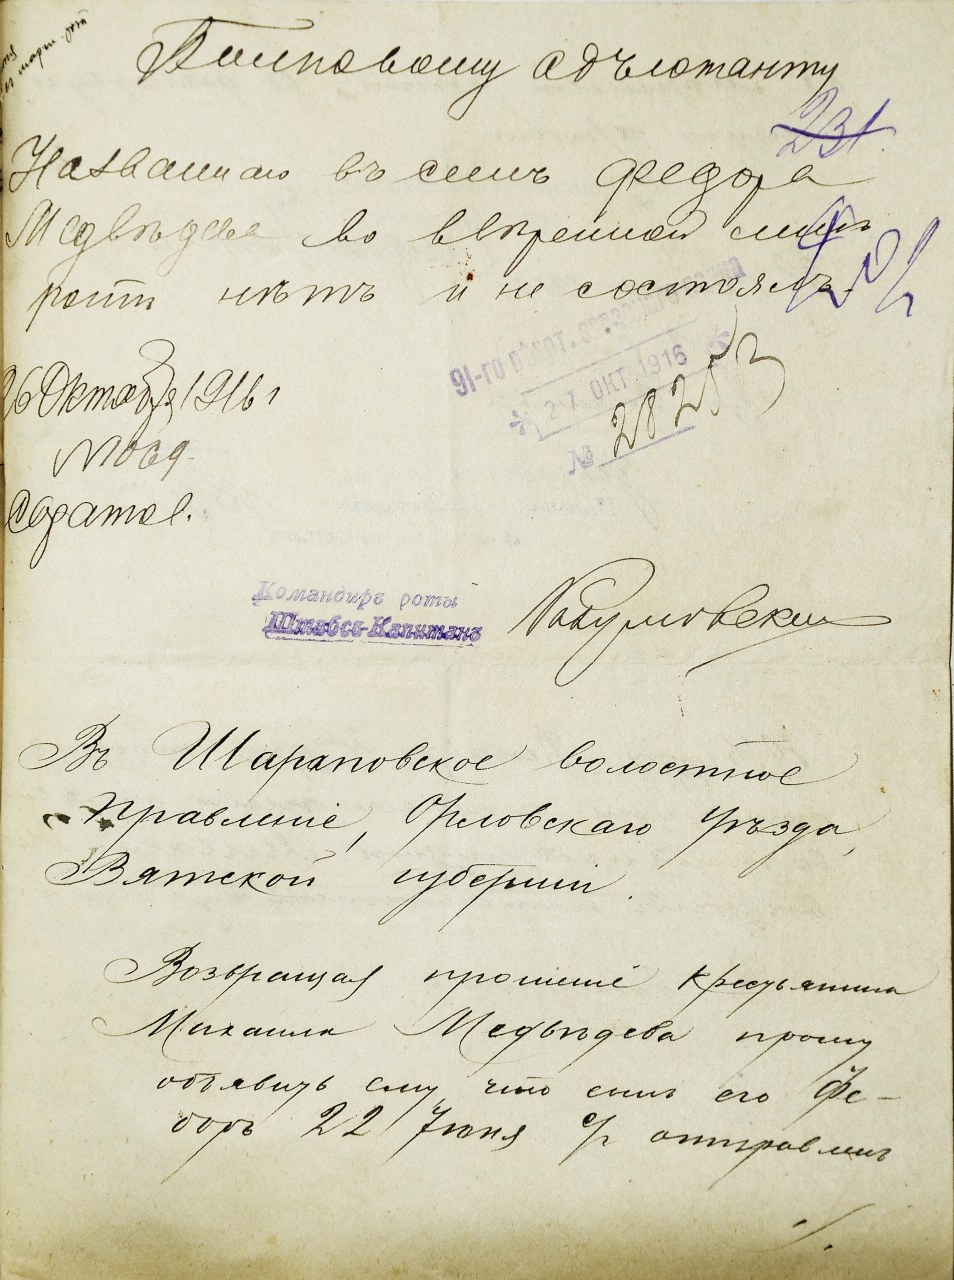 Полковому адъютанту
231.
Названнаго въ семъ Федора
Медвѣдева во ввѣренной мнѣ
ротѣ нѣтъ и не состоялъ.
91-го пѣхот. запаснаго
26 Октября 1916 г
27 ОКТ 1916
№ 28253
Командиръ роты
Штабсъ-Капитанъ
Въ Шараповское волостное
Правленіе, Орловскаго уѣзда,
Вятской губерніи.
Возвращая прошеніе крестьянина
Михаила Медвѣдева прошу
объявить ему, что сынъ его Фе-
доръ 22 Іюня с/г отправленъ